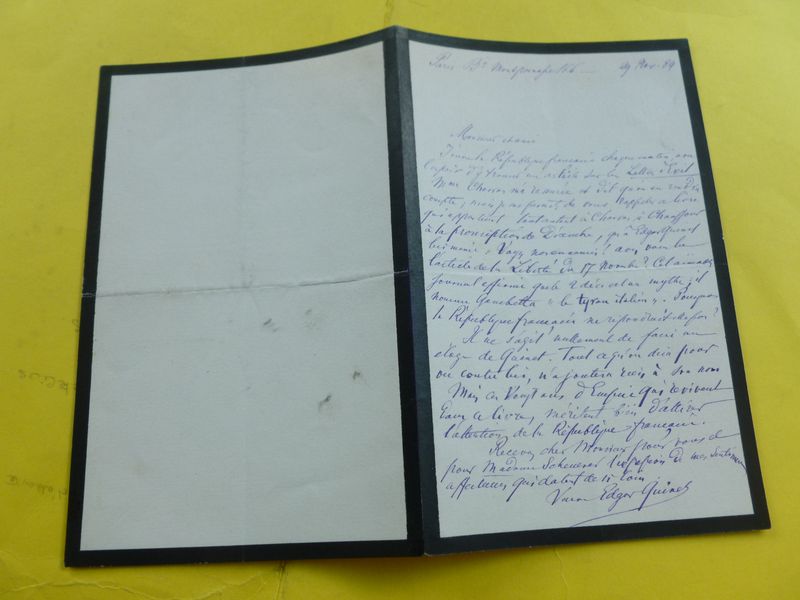 Paris Bd Montparnasse 29 Nov. 84
Monsieur et ami
J'ouvre la République française chaque matin, avec
l'espoir d'y trouver un article sur les Lettres d'Exil
Mon Chassin me et dit qu'on en rendra
compte; mais je me permets de vous rappeler ce livre
qui appartient tout autant à Chassin, à Chauffour
à la proscription de Décembre, qu'à Edgar Quinet
lui-même. avez vous lu
l'article de la Liberté du 17 Novembre? Cet aimable
journal affirme que le 2 décembre est un mythe; il
nomme Gambetta « le tyran italien ». Pourquoi
la République française ne répondrait-elle pas?
Il ne s'agit nullement de faire un
éloge de Quinet. Tout ce qu'on dira pour
ou contre lui, n'ajoutera rien à son nom
Mais ces Vingt ans d'Empire qui revivent
dans ce livre, méritent bien d'attirer
l'attention de la République française.
Recevez cher Monsieur pour vous et
pour Madame Scheurer l'expression de mes sentiments
affectueux qui datent de si loin
Veuve Edgar Quinet